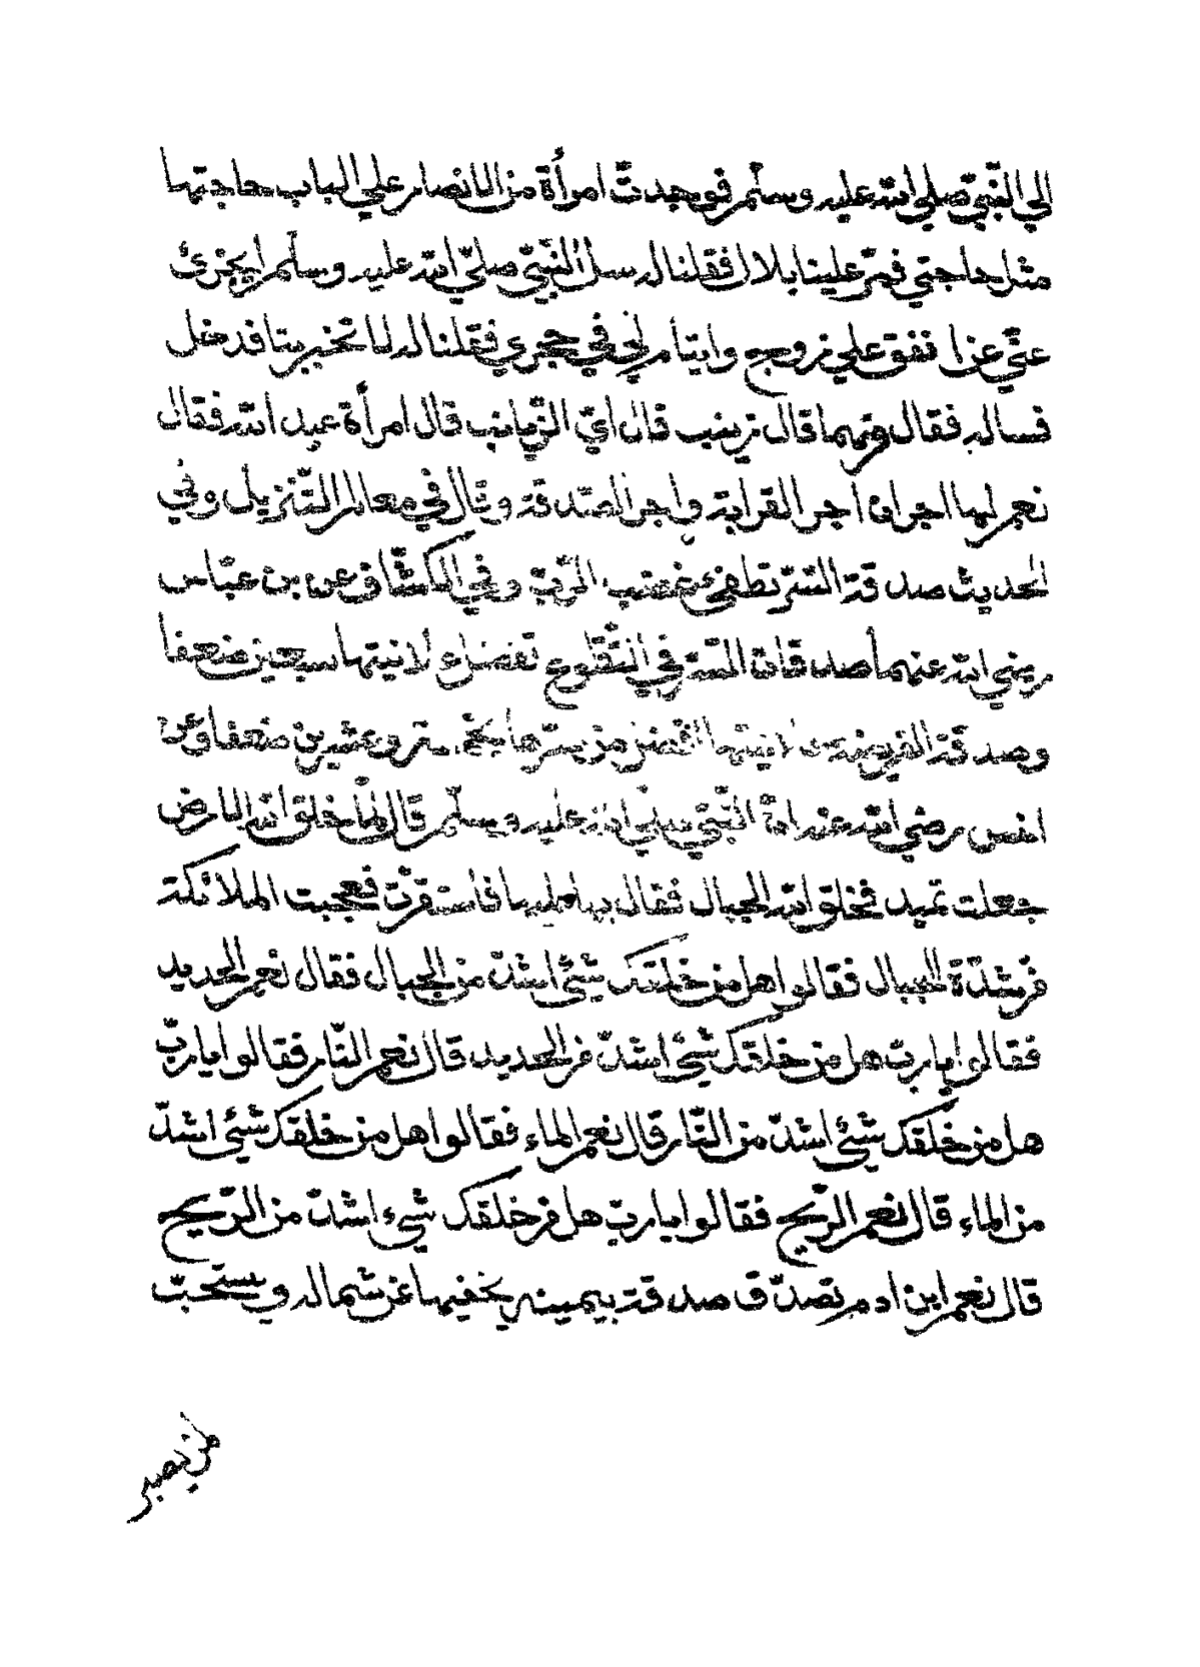 الي النّبيّ صلي الله عليه وسلّم فوجدتّ امرأة من الانصار علي الباب حاجتها
مثل حاجتي فمرّ علينا بلال فقلنا له سل النّبيّ صلّي الله عليه وسلّم ايجزئ
عنّي عن انفق علي زوجي وايتام لي في حجري فقلنا له لا تخبر بنا فدخل
فساله فقال من هما قال زينب قال ايّ الزّيانب قال امرأة عبد الله فقال
نعم لها اجران أجر القرابة واجر الصّدقة وقال في معالم التّنزيل وفي
الحديث صدقة السّر تطفئ غضب الرّبّ وفي الكشّاف عن بن عبّاس
رضي الله عنهما صدقات السّر في التّطوّع تفضل علانيتها سبعين ضعفا
وصدقة الفريضة علانيتها افضل من سرّها بخمسة وعشرين ضعفا وعن
انس رضي الله عنه انّ النّبيّ صلّي الله عليه وسلّم قال لمّا خلق الله الارض
جعلت تميد فخلق الله الجبال فقال بها عليها فاستقرّت فعجبت الملائكة
من شدّة الجبال فقالوا هل من خلقك شئ اشدّ من الجبال فقال نعم الحديد
فقالوا يارب هل من خلقك شئ اشدّ من الحديد قال نعم النّار فقالوا يا ربّ
هل من خلقك شئ اشدّ من النّار قال نعم الماء فقالوا هل من خلقك شئ اشدّ
من الماء قال نعم الرّيح فقالوا يا ربّ هل من خلقك شيء اشدّ من الرّيح
قال نعم ابن ادم تصدّق صدقة بيمينه يخفيها عن شماله ويستحبّ